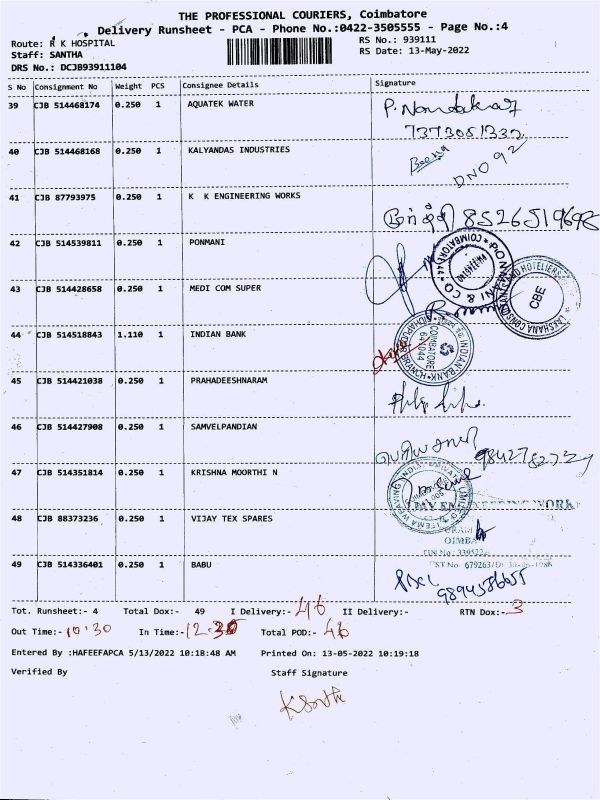 THE PROFESSIONAL COURIERS, Coimbatore
Delivery Runsheet - PCA - Phone No.:0422-3505555 - Page No.:4
Route: R K HOSPITAL
RS No.: 939111
Staff: SANTHA
RS Date: 13-May-2022
DRS No.: DCJB93911104
S No Consignment No Weight PCS Consignee Details Signature
39 CJB 514468174 0.250 1 AQUATEK WATER
7373081332
40 CJB 514468168 0.250 1 KALYANDAS INDUSTRIES
Beena DNO 92
41 CJB 87793975 0.250 1 K K ENGINEERING WORKS
8526519698
42 CJB 514539811 0.250 1 PONMANI
COIMBATORE
43 CJB 514428658 0.250 1 MEDI COM SUPER
CBE
44 CJB 514518843 1.110 1 INDIAN BANK
INDIAN BANK
COIMBATORE
641044
BRANCH
45 CJB 514421038 0.250 1 PRAHADEESHNARAM
46 CJB 514427908 0.250 1 SAMVELPANDIAN
47 CJB 514351814 0.250 1 KRISHNA MOORTHI N
48 CJB 88373236 0.250 1 VIJAY TEX SPARES
49 CJB 514336401 0.250 1 BABU
Tot. Runsheet:- 4 Total Dox:- 49 I Delivery:- 46 II Delivery:- RTN Dox:- 3
Out Time:- 10:30 In Time:- Total POD:- 46
Entered By :HAFEEFAPCA 5/13/2022 10:18:48 AM Printed On: 13-05-2022 10:19:18
Verified By Staff Signature